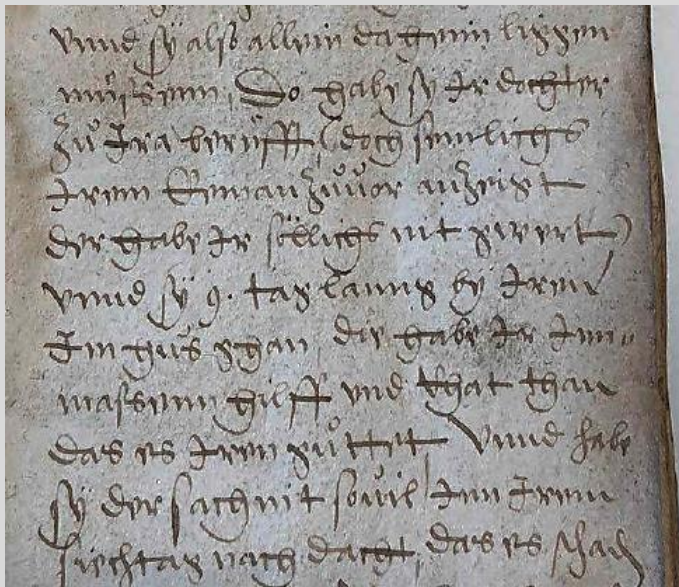 vnnd sy also allein da heim liggen
müssenn, Do habe sy Ir dochter
zuͦ Ira berüfft, (doch semlichs
Irem Eeman zuͦuor anzeigt
der habe Ir sölichs nit gwert)
vnnd sy 9. tag lanng by Iren
Im hus ghan, die habe Ir Inn-
massenn hilff vnd that than
das es Iren guͦttet, Vnnd habe
sy der sach nit souil Inn Irem
siechtag nach dacht, das es schad